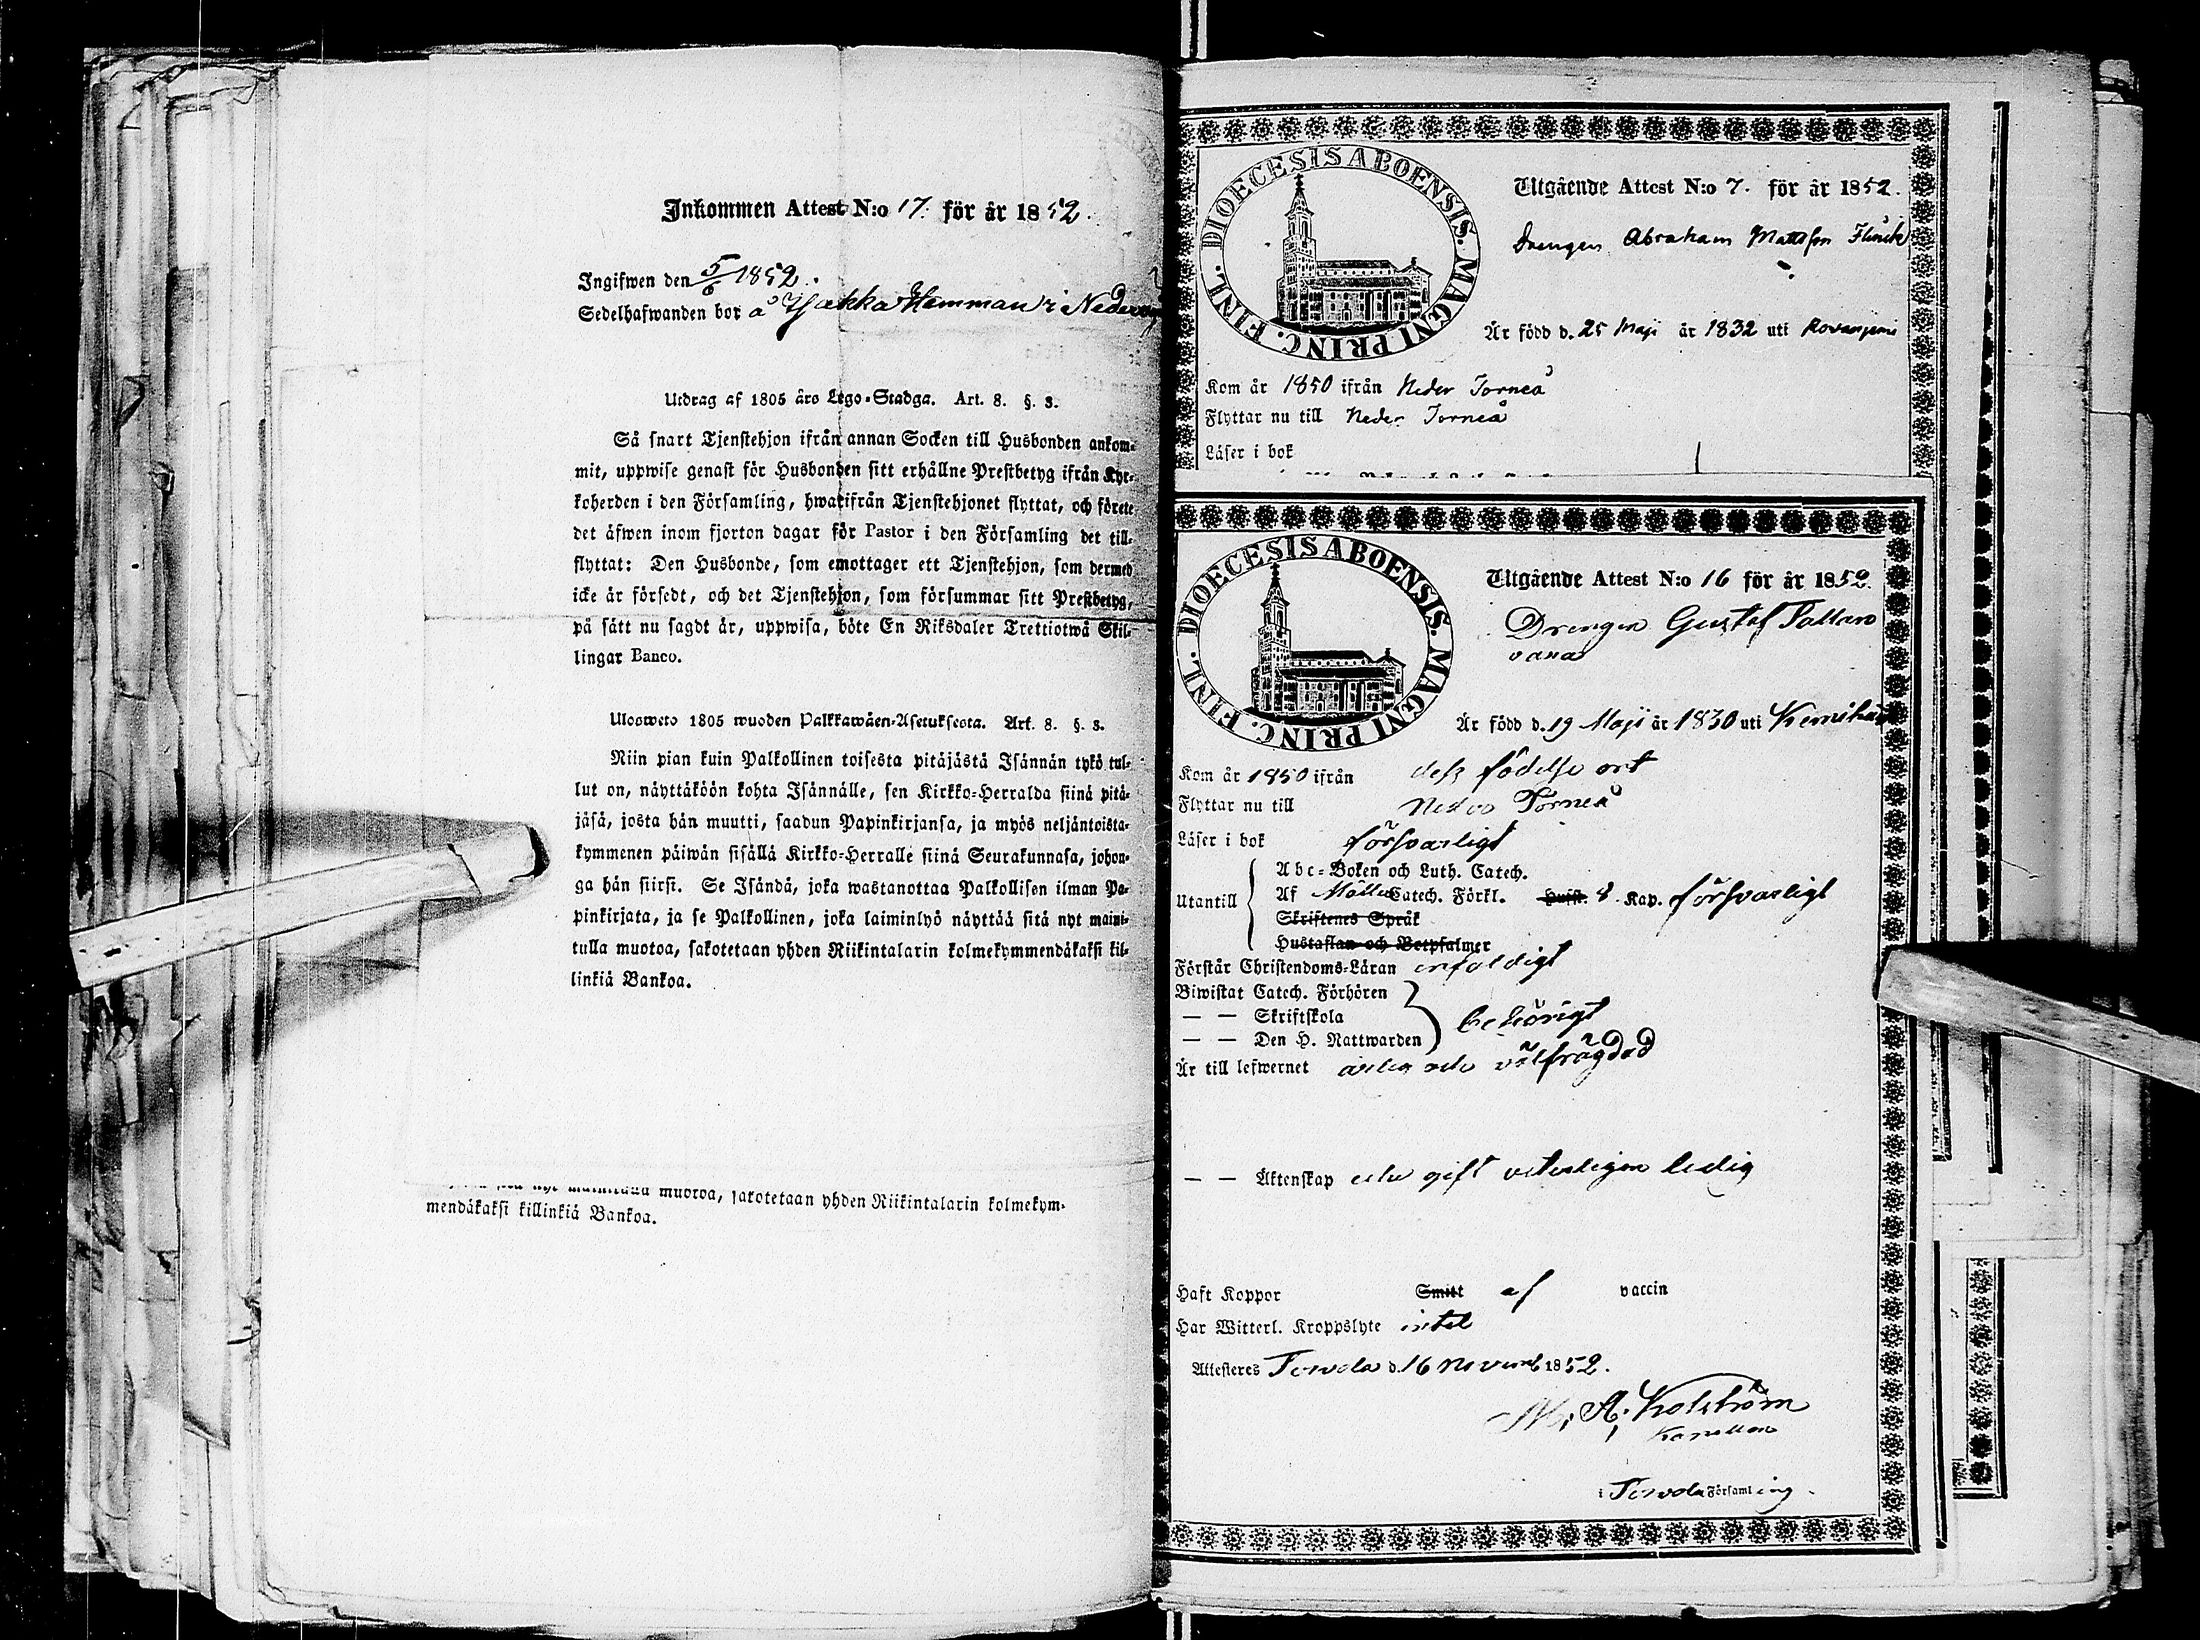 Inkommen Attest N:o 17. för år 1852.
Ingifwen den 5/6 1852.
Sedelhafwanden bor å Yjakka Hemman i Neder
Utdrag af 1805 års Lego-Stadga. Art. 8. §. 3.
Så snart Tjenstehjon ifrån annan Socken till Husbonden ankom-
mit, uppwise genast för Husbonden sitt erhållne Prestbetyg ifrån Kyr-
koherden i den Församling, hwarifrån Tjenstehjonet flyttat, och förete
det äfwen inom fjorton dagar för Pastor i den Församling det till-
flyttat: Den Husbonde, som emottager ett Tjenstehjon, som dermed
icke är försedt, och det Tjenstehjon, som försummar sitt Prestbetyg,
på sätt nu sagdt är, uppwisa, böte En Riksdaler Trettiotwå Skil-
lingar Banco.
Ulosweto 1805 wuoden Palkkawäen-Asetuksesta. Art. 8. §. 3.
Niin pian kuin Palkollinen toisesta pitäjästä Isännän tykö tul-
lut on, näyttäköön kohta Isännälle, sen Kirkko-Herralda siinä pitä-
jäsä, josta hän muutti, saadun Papinkirjansa, ja myös neljäntoista-
kymmenen päiwän sisällä Kirkko-Herralle siinä Seurakunnasa, johon-
ga hän siirsi. Se Isändä, joka wastanottaa Palkollisen ilman Pa-
pinkirjata, ja se Palkollinen, joka laiminlyö näyttää sitä nyt maini-
tulla muotoa, sakotetaan yhden Riikintalarin kolmekymmendäkaksi kil-
linkiä Bankoa.
muotoa, sakotetaan yhden Riikintalarin kolmekym-
mendäkaksi killinkiä Bankoa.
DIOECESIS ABOENSIS. MAGNI PRINC. FINL.
Utgående Attest N:o 7. för år 1852.
Drengen Abraham Mattsson Flinck
Är född d. 25 Maji år 1832 uti Rovaniemi
Kom år 1850 ifrån Neder Torneå
Flyttar nu till Neder Torneå
Läser i bok
DIOECESIS ABOENSIS. MAGNI PRINC. FINL.
Utgående Attest N:o 16 för år 1852.
Drengen Gustaf
Är född d. 19 Maji år 1830 uti
Kom år 1850 ifrån dess födelse ort
Flyttar nu till Neder Torneå
Läser i bok försvarligt
Utantill
Abc-Boken och Luth. Catech.
Af Catech. Förkl. Husst. 8. Kap. försvarligt
Skriftenes Språk
Hustaflan och Botpsalmer
Förstår Christendoms-Läran enfaldigt
Biwistat Catech. Förhören
— — Skriftskola behörigt
— — Den H. Nattwarden
Är till lefwernet ärlig och välfrägdad
— — Äktenskap icke gift veterligen ledig
Haft Koppor Smitt af vaccin
Har Witterl. Kroppslyte intet
Attesteres Tervola d. 16 Novemb 1852.
Kapellan
i Tervola Församling.